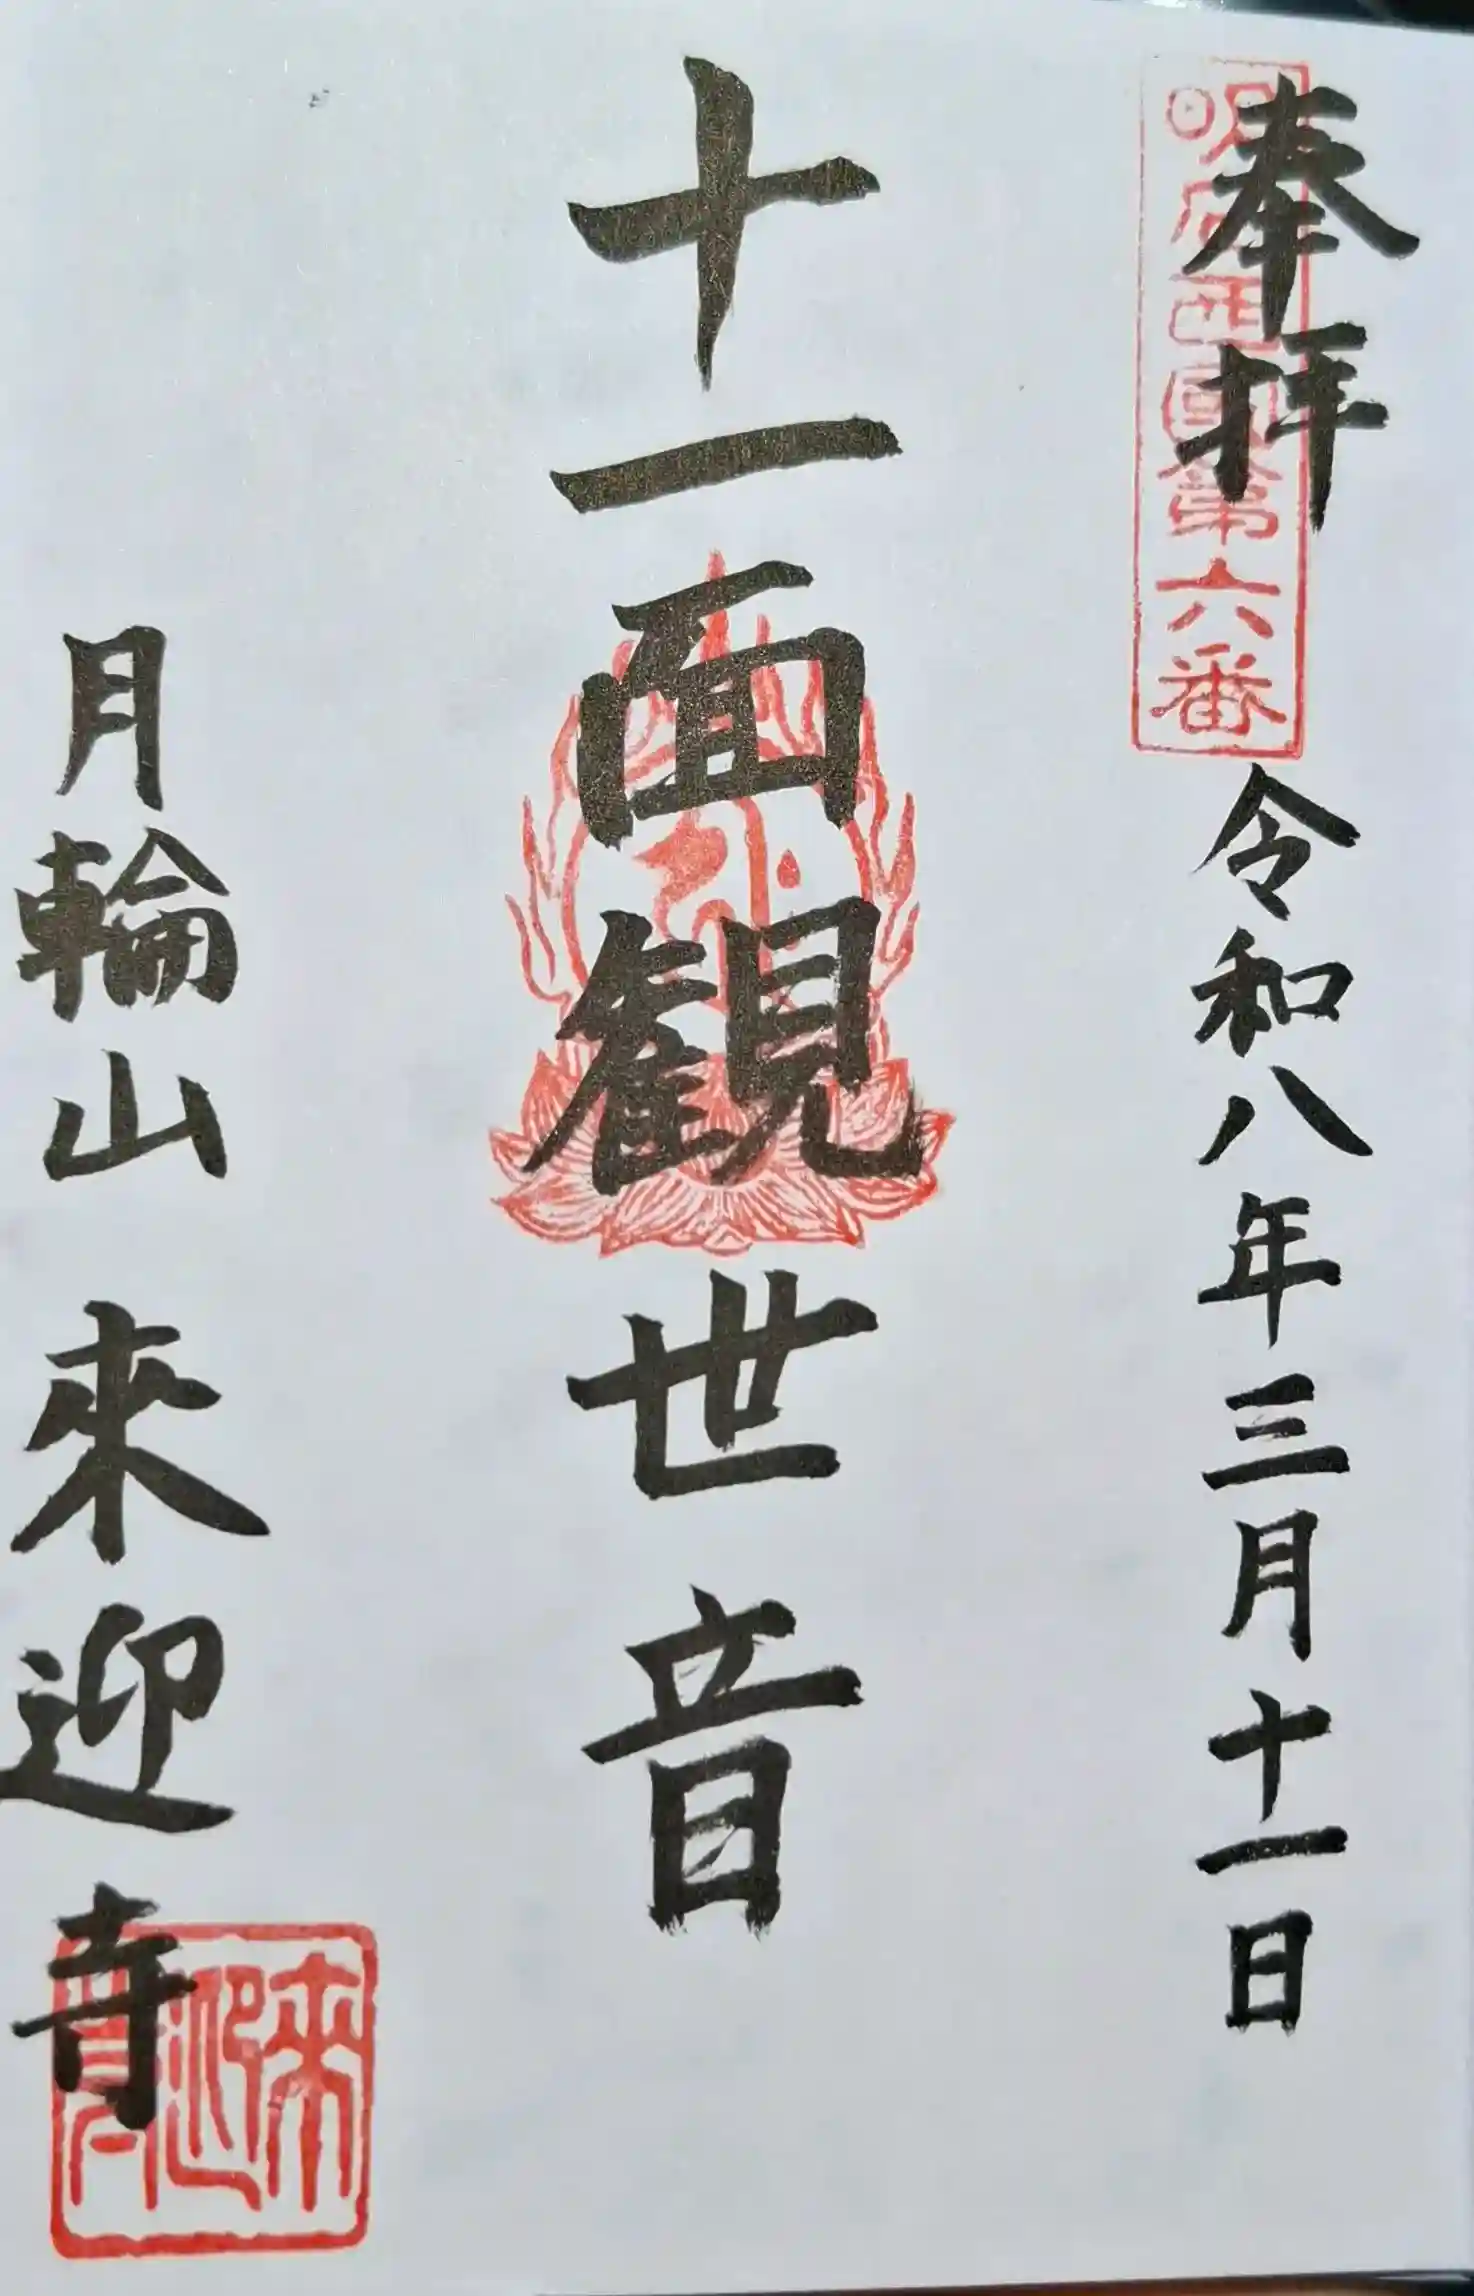 奉拝
明石西國第六番
令和八年三月十一日
十一面観世音
月輪山 來迎寺
來迎寺